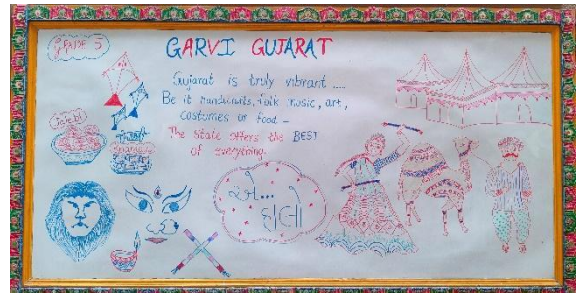 GRADE 5
GARVI GUJARAT
Gujarat is truly vibrant ....
Be it handicrafts, folk music, art,
costumes or food -
The state offers the BEST
of everything.
Jalebi
એ...
હાલો